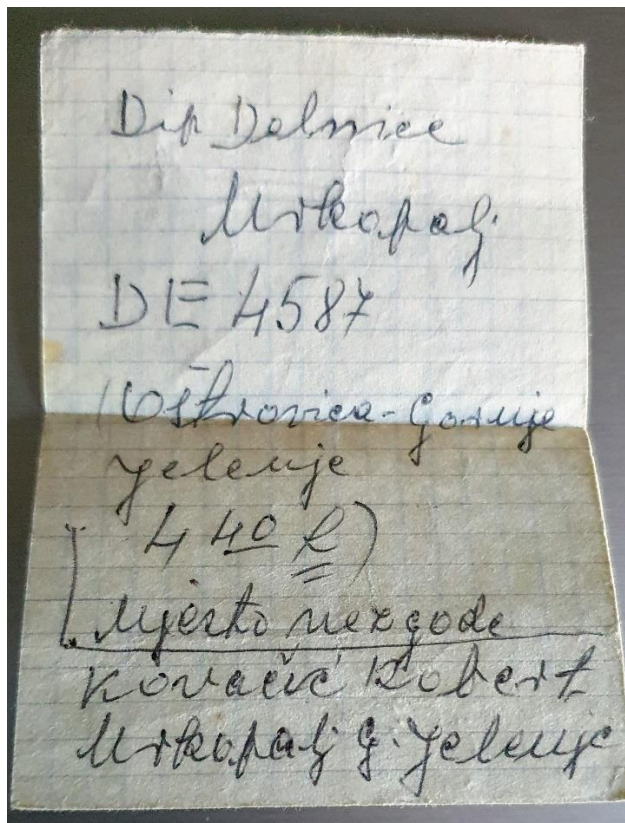 Dip Delnice
Mrkopalj
DE 4587
(Oštrovica - Gornje
Jelenje
4 40 h)
Mjesto nezgode
Kovačić Robert
Mrkopalj G. Jelenje